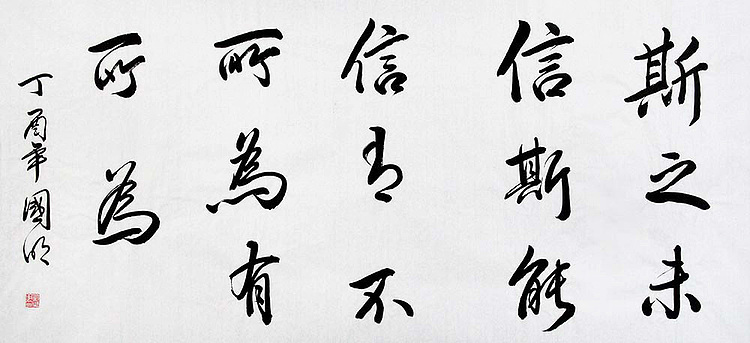 斯之未
信斯能
信有不
所為有
所為
丁酉年國明